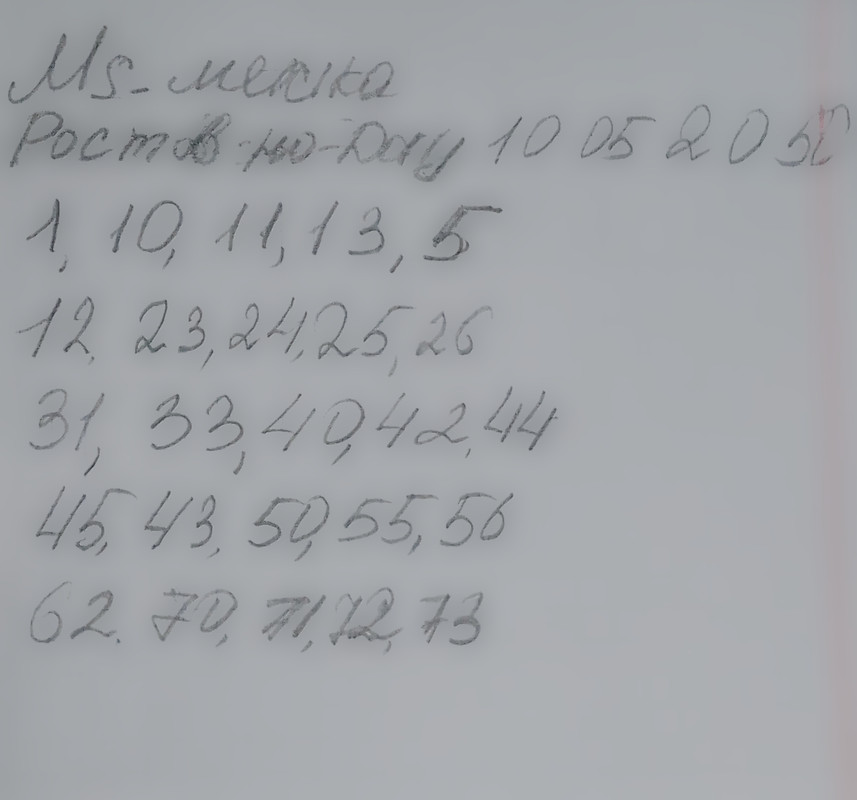 Ms-межка
Ростов-на-Дону 10 05 20
1, 10, 11, 13, 5
12, 23, 24, 25, 26
31, 33, 40, 42, 44
45, 43, 50, 55, 56
62. 70, 71, 72, 73